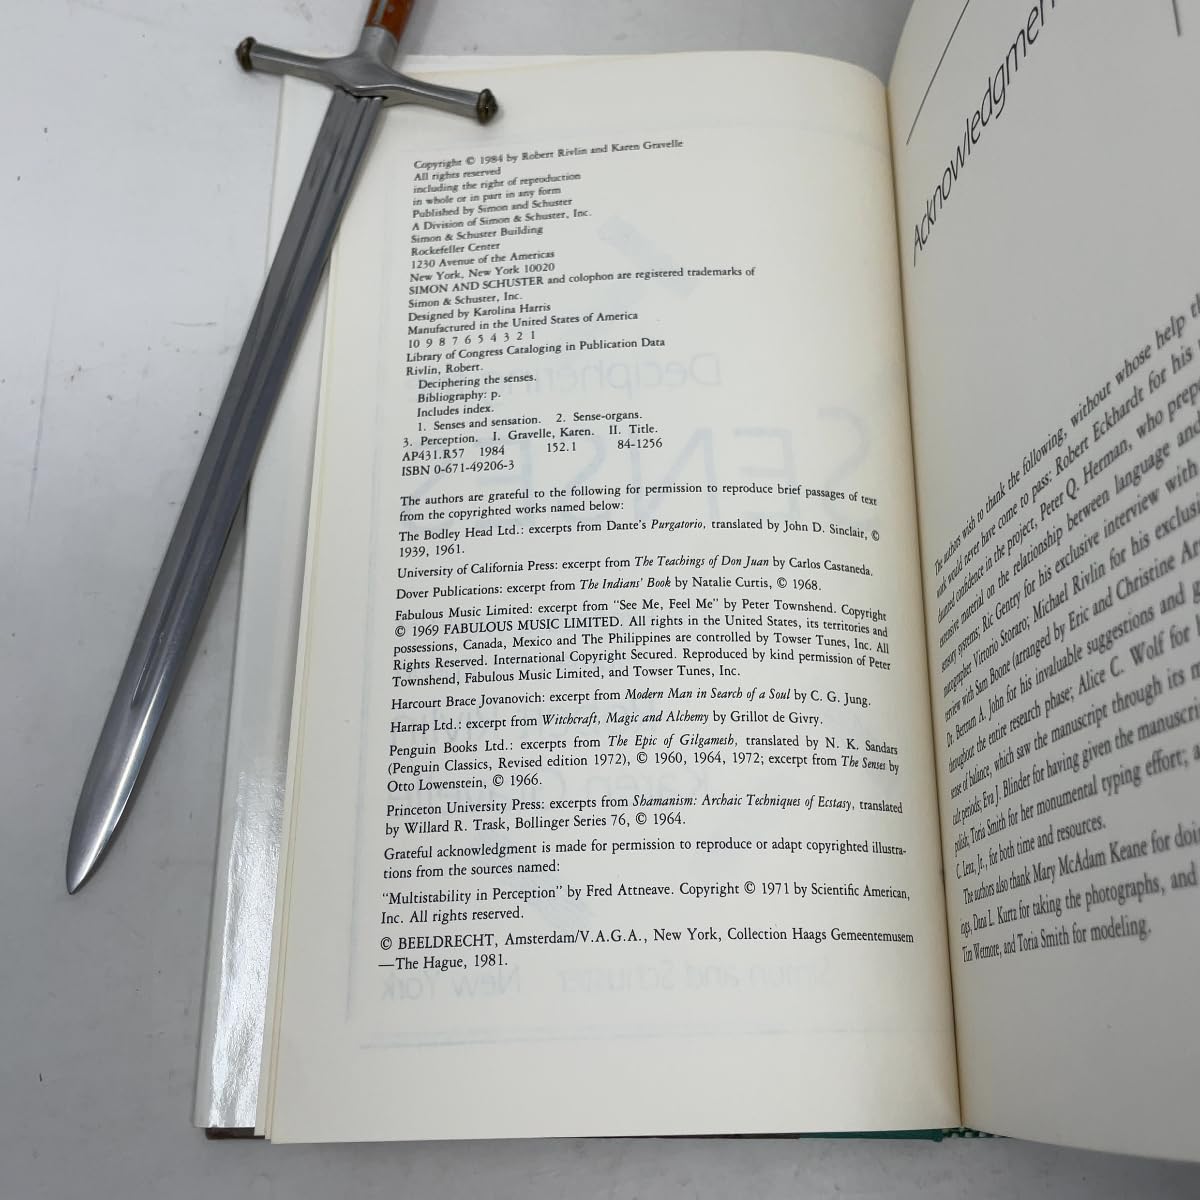 Copyright © 1984 by Robert Rivlin and Karen Gravelle
All rights reserved
including the right of reproduction
in whole or in part in any form
Published by Simon and Schuster
A Division of Simon & Schuster, Inc.
Simon & Schuster Building
Rockefeller Center
1230 Avenue of the Americas
New York, New York 10020
SIMON AND SCHUSTER and colophon are registered trademarks of
Simon & Schuster, Inc.
Designed by Karolina Harris
Manufactured in the United States of America
10 9 8 7 6 5 4 3 2 1
Library of Congress Cataloging in Publication Data
Rivlin, Robert.
Deciphering the senses.
Bibliography: p.
Includes index.
1. Senses and sensation. 2. Sense-organs.
3. Perception. I. Gravelle, Karen. II. Title.
AP431.R57 1984 152.1 84-1256
ISBN 0-671-49206-3
The authors are grateful to the following for permission to reproduce brief passages of text
from the copyrighted works named below:
The Bodley Head Ltd.: excerpts from Dante's Purgatorio, translated by John D. Sinclair, ©
1939, 1961.
University of California Press: excerpt from The Teachings of Don Juan by Carlos Castaneda.
Dover Publications: excerpt from The Indians' Book by Natalie Curtis, © 1968.
Fabulous Music Limited: excerpt from "See Me, Feel Me" by Peter Townshend. Copyright
© 1969 FABULOUS MUSIC LIMITED. All rights in the United States, its territories and
possessions, Canada, Mexico and The Philippines are controlled by Towser Tunes, Inc. All
Rights Reserved. International Copyright Secured. Reproduced by kind permission of Peter
Townshend, Fabulous Music Limited, and Towser Tunes, Inc.
Harcourt Brace Jovanovich: excerpt from Modern Man in Search of a Soul by C. G. Jung.
Harrap Ltd.: excerpt from Witchcraft, Magic and Alchemy by Grillot de Givry.
Penguin Books Ltd.: excerpts from The Epic of Gilgamesh, translated by N. K. Sandars
(Penguin Classics, Revised edition 1972), © 1960, 1964, 1972; excerpt from The Senses by
Otto Lowenstein, © 1966.
Princeton University Press: excerpts from Shamanism: Archaic Techniques of Ecstasy, translated
by Willard R. Trask, Bollinger Series 76, © 1964.
Grateful acknowledgment is made for permission to reproduce or adapt copyrighted illustra-
tions from the sources named:
"Multistability in Perception" by Fred Attneave. Copyright © 1971 by Scientific American,
Inc. All rights reserved.
© BEELDRECHT, Amsterdam/V.A.G.A., New York, Collection Haags Gemeentemusem
—The Hague, 1981.
Acknowledgmen
The authors wish to thank the following, without whose help th
work would never have come to pass: Robert Eckhardt for his
confidence in the project, Peter Q. Herman, who prep
extensive material on the relationship between language and
sensory systems; Ric Gentry for his exclusive interview with
Vittorio Storaro; Michael Rivlin for his exclus
terview with Sam Boone (arranged by Eric and Christine Ar
Dr. Bertram A. John for his invaluable suggestions and g
throughout the entire research phase; Alice C. Wolf for h
sense of balance, which saw the manuscript through its m
periods; Eva J. Blinder for having given the manuscri
polish; Toria Smith for her monumental typing effort; a
C. Lenz, Jr., for both time and resources.
The authors also thank Mary McAdam Keane for doi
ings, Dana L. Kurtz for taking the photographs, and
Tim Wetmore, and Toria Smith for modeling.